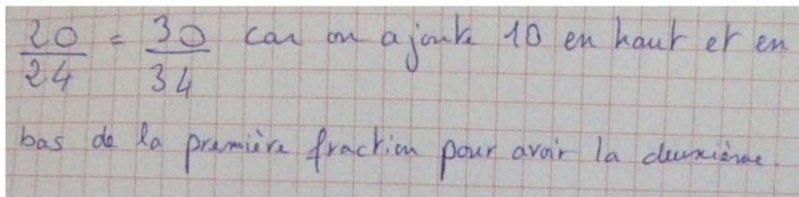 20/24 = 30/34 car on ajoute 10 en haut et en
bas de la première fraction pour avoir la deuxième.